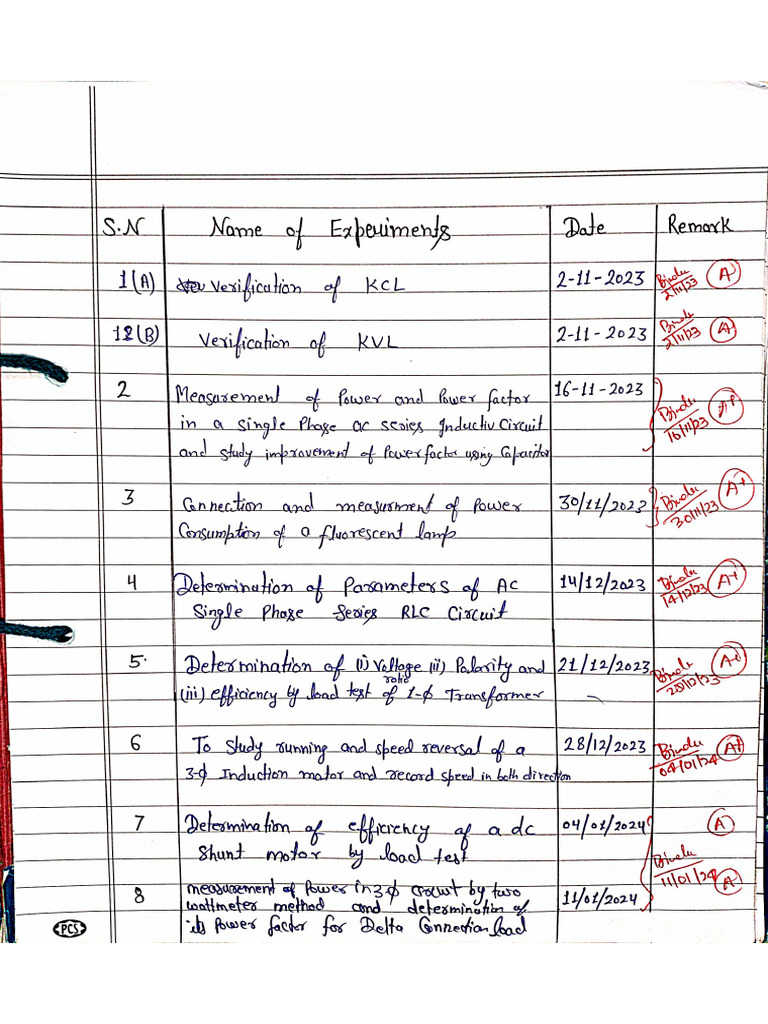 S.N Name of Experiments Date Remark
1(A) Verification of KCL 2-11-2023 Bindu 2/11/23 A
1(B) Verification of KVL 2-11-2023 Bindu 2/11/23 A
2 Measurement of Power and Power factor 16-11-2023
in a single Phase ac series Inductiv Circuit Bindu 16/11/23
and study improvement of Power factor using Capacitor
3 Connection and measurment of Power 30/11/2023 Bindu 30/11/23 A+
Consumption of a fluorescent lamp
4 Determination of Parameters of AC 14/12/2023 Bindu 14/12/23 A+
Single Phase Series RLC Circuit
5. Determination of (i) Voltage ratio (ii) Polarity and 21/12/2023 Bindu 28/12/23
(iii) efficiency by load test of 1-ϕ Transformer
6 To study running and speed reversal of a 28/12/2023 Bindu 04/01/24 A+
3-ϕ Induction motor and record speed in both direction
7 Determination of efficiency of a dc 04/01/2024 A
Shunt motor by load test
8 measurement of Power in 3-ϕ circuit by two Bindu 11/01/24 A
wattmeter method and determination of 11/01/2024
its Power factor for Delta Connection load
PCS